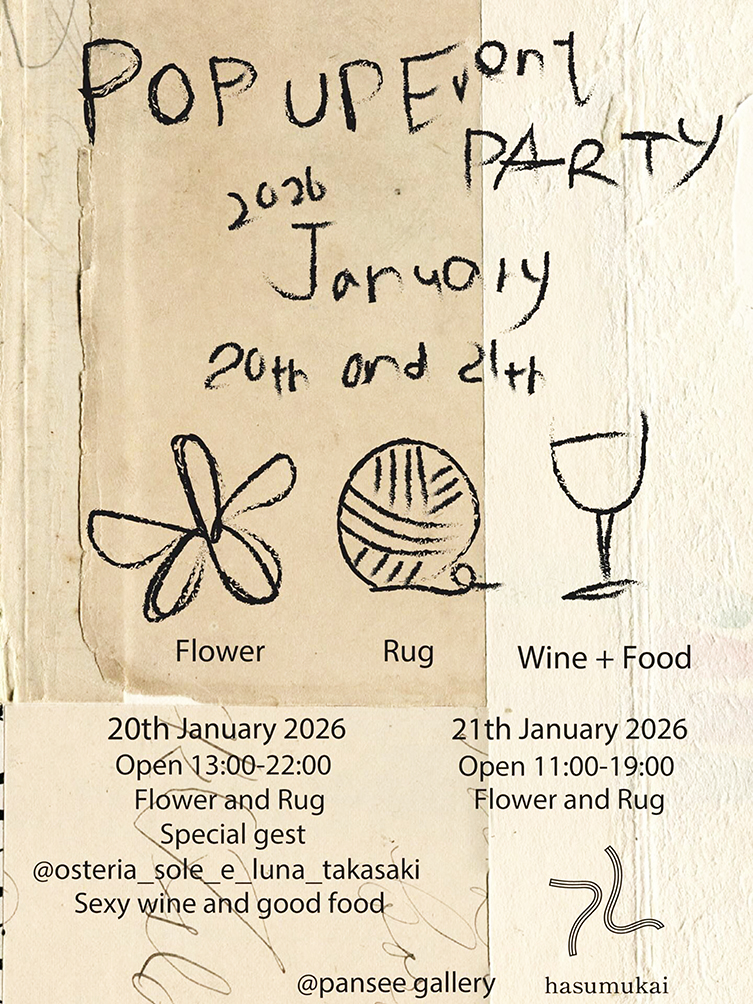 POP UP Event
PARTY
2026
January
20th and 21th
Flower
Rug
Wine + Food
20th January 2026
Open 13:00-22:00
Flower and Rug
Special gest
@osteria_sole_e_luna_takasaki
Sexy wine and good food
21th January 2026
Open 11:00-19:00
Flower and Rug
@pansee gallery
hasumukai